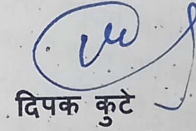 दिपक कुटे